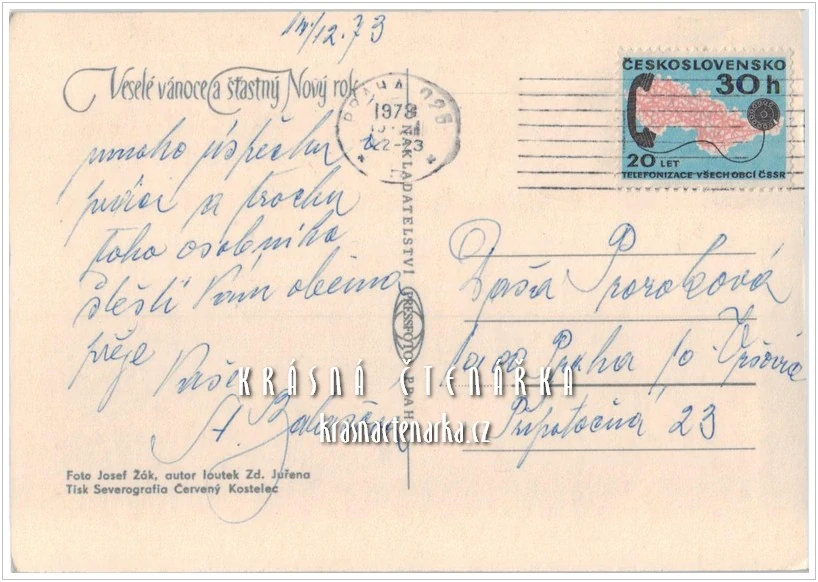 14./12.73
Veselé vánoce a šťastný Nový rok
PRAHA 026
1973
22-23
ČESKOSLOVENSKO
30 h
20 LET
TELEFONIZACE VŠECH OBCÍ ČSSR
mnoho úspěchu v
práci a trochu
toho osobního
štěstí Vám oběma
přeje
Vaše
A.
NAKLADATELSTVÍ PRESSFOTO PRAHA
Dáša Proroková
Praha 10 Vršovice
Přípotoční 23
KRÁSNÁ ČTENÁŘKA
krasnactenarka.cz
Foto Josef Žák, autor loutek Zd. Juřena
Tisk Severografia Červený Kostelec